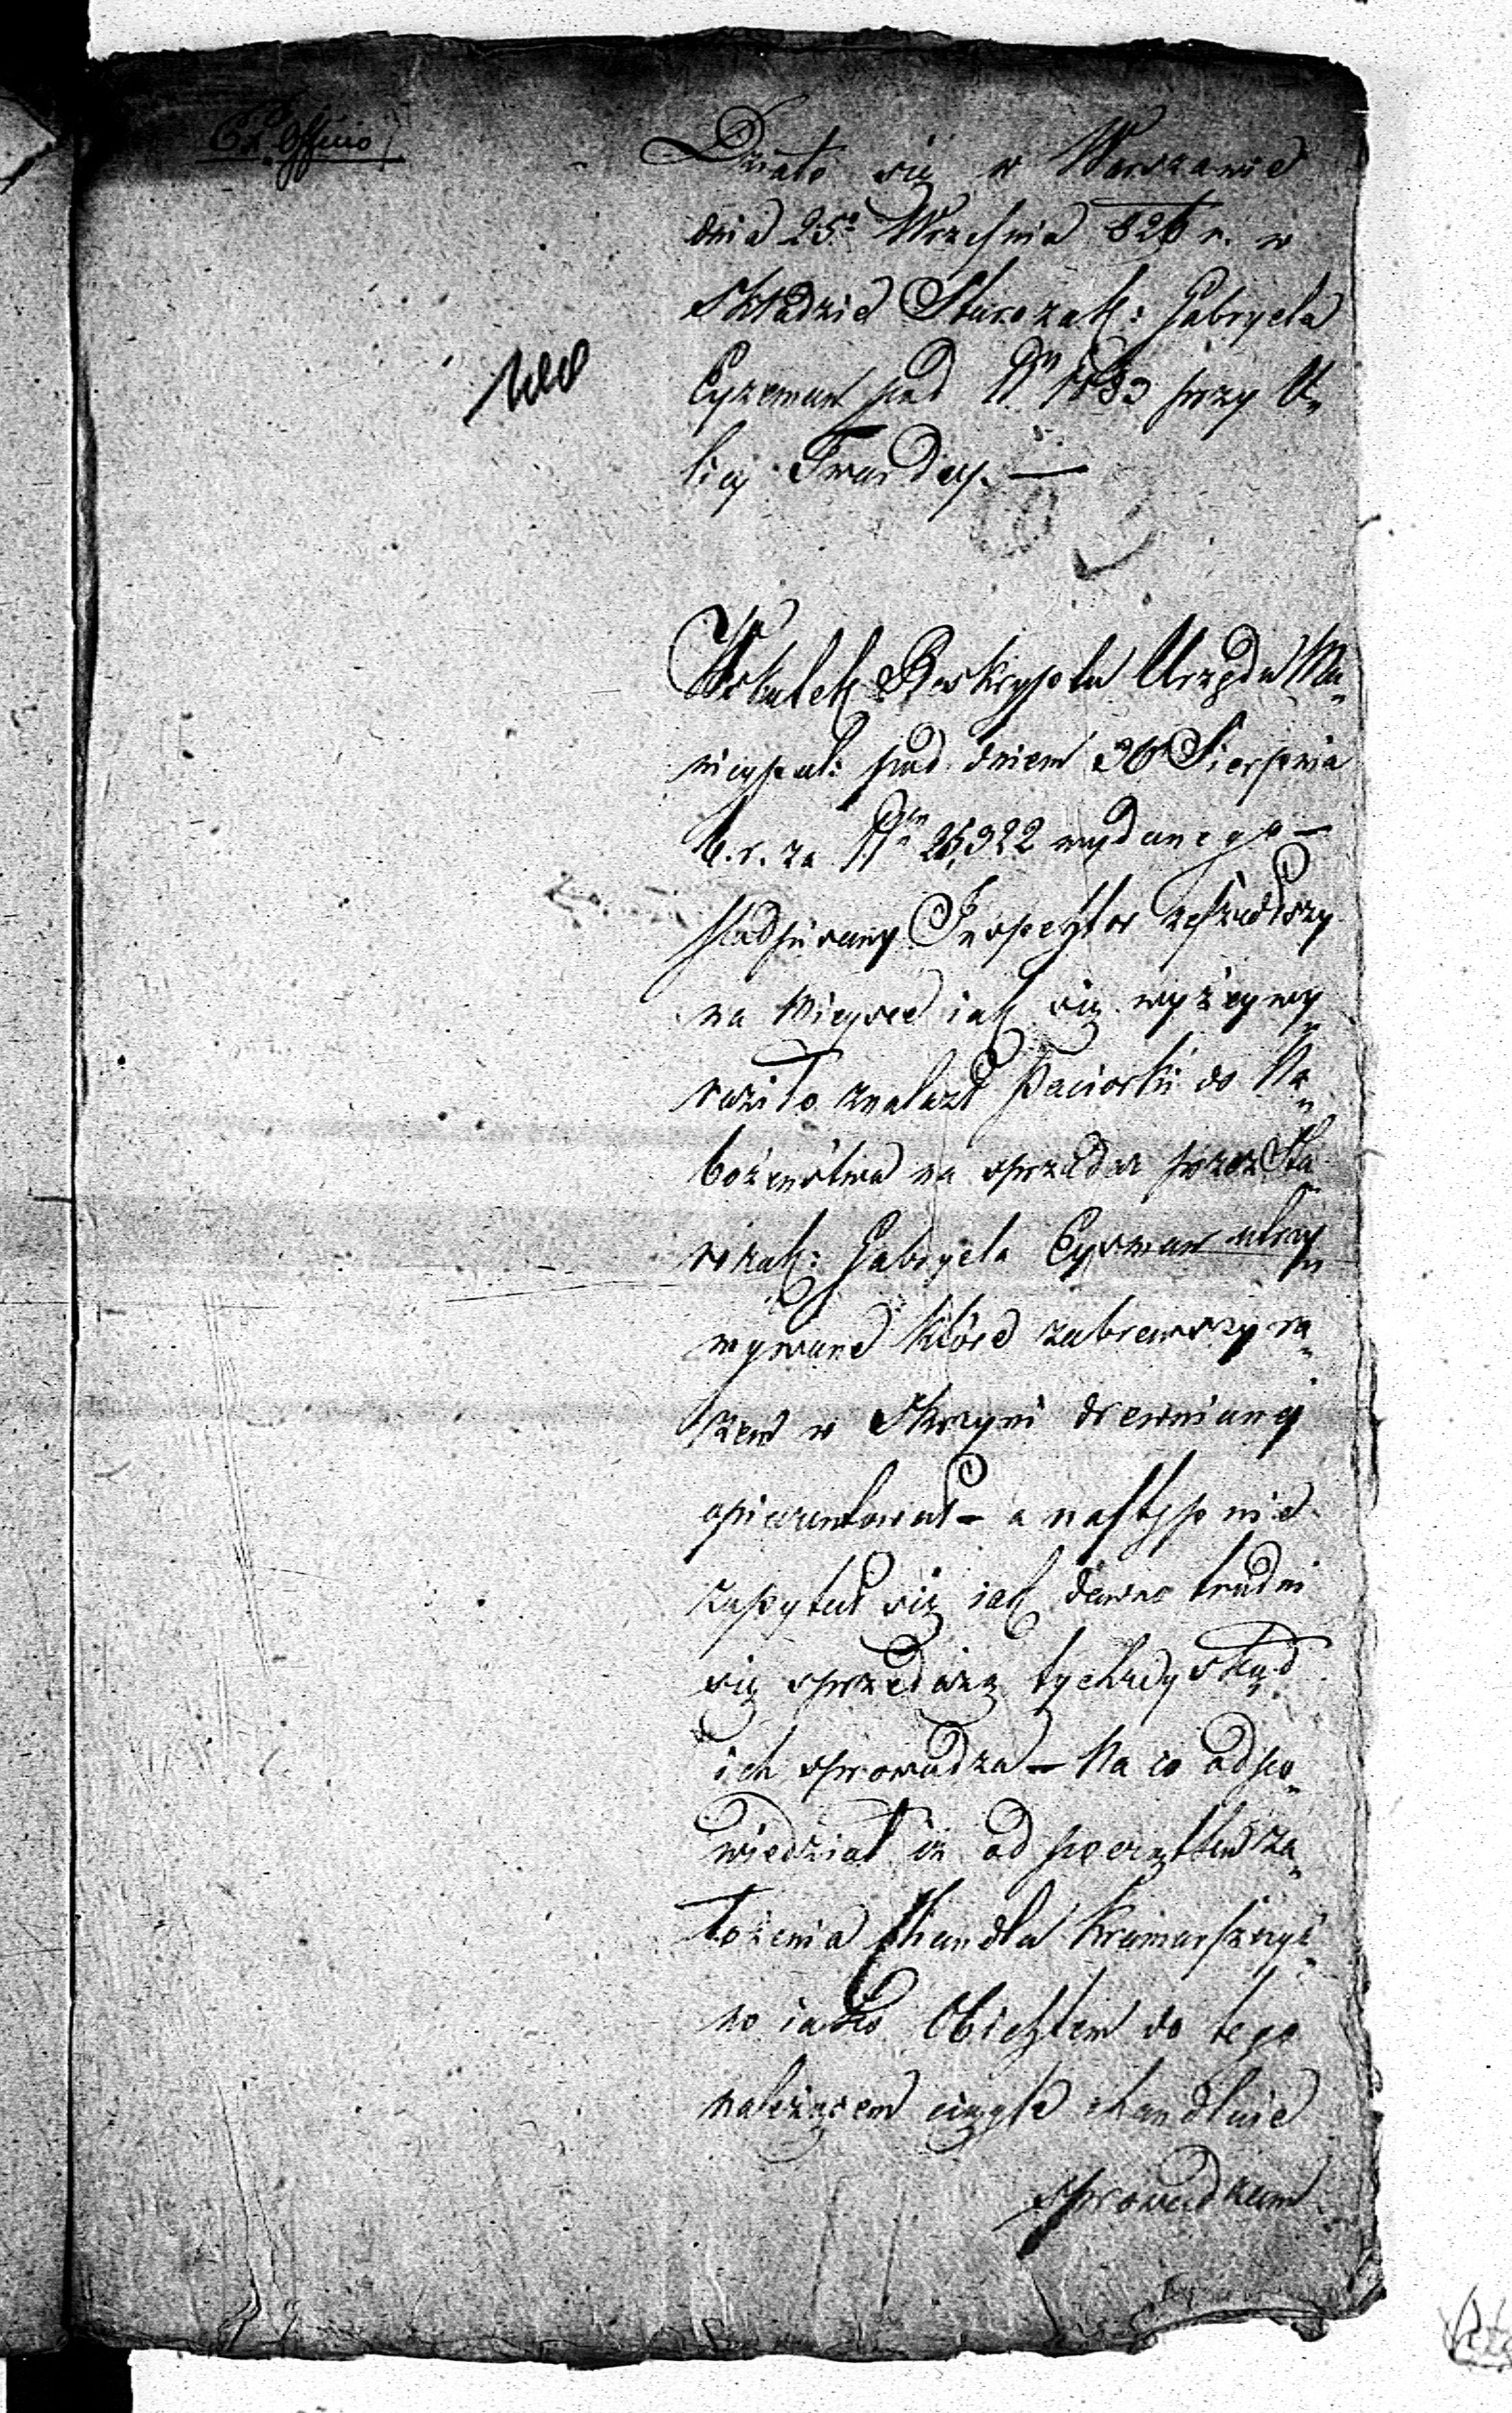 Ex Officio
Działo się w Warszawie
dnia 25º Września 826 r. w
Składzie Starozak: Gabryela
Cyzeman pod Nº 1083 przy U„
licy Twardey. —
Wskutek Reskryptu Urzędu Mu„
nicypal: pod dniem 30º Sierpnia
b. r. za Nº 25,922 wydanego —
podpisany Inspektor zeszedłszy
na Mieysce iak się wyżey wy„
raziło znalazł Paciorki do Na„
bożeństwa na sprzedaż przez Sta„
rozak: Gabryela Cyzman utrzy„
mywane które zabrawszy ra„
zem w Skrzyni drewnianey
opieczentował — a następnie
zapytał się iak dawno trudni
się sprzedażą tychże y skąd
ich sprowadza — Na co odpo„
wiedział iż od początku za„
łożenia Handlu Kramarszczyz„
no iako Obiektem do tego
należącem ciągle handluie
sprowadzam